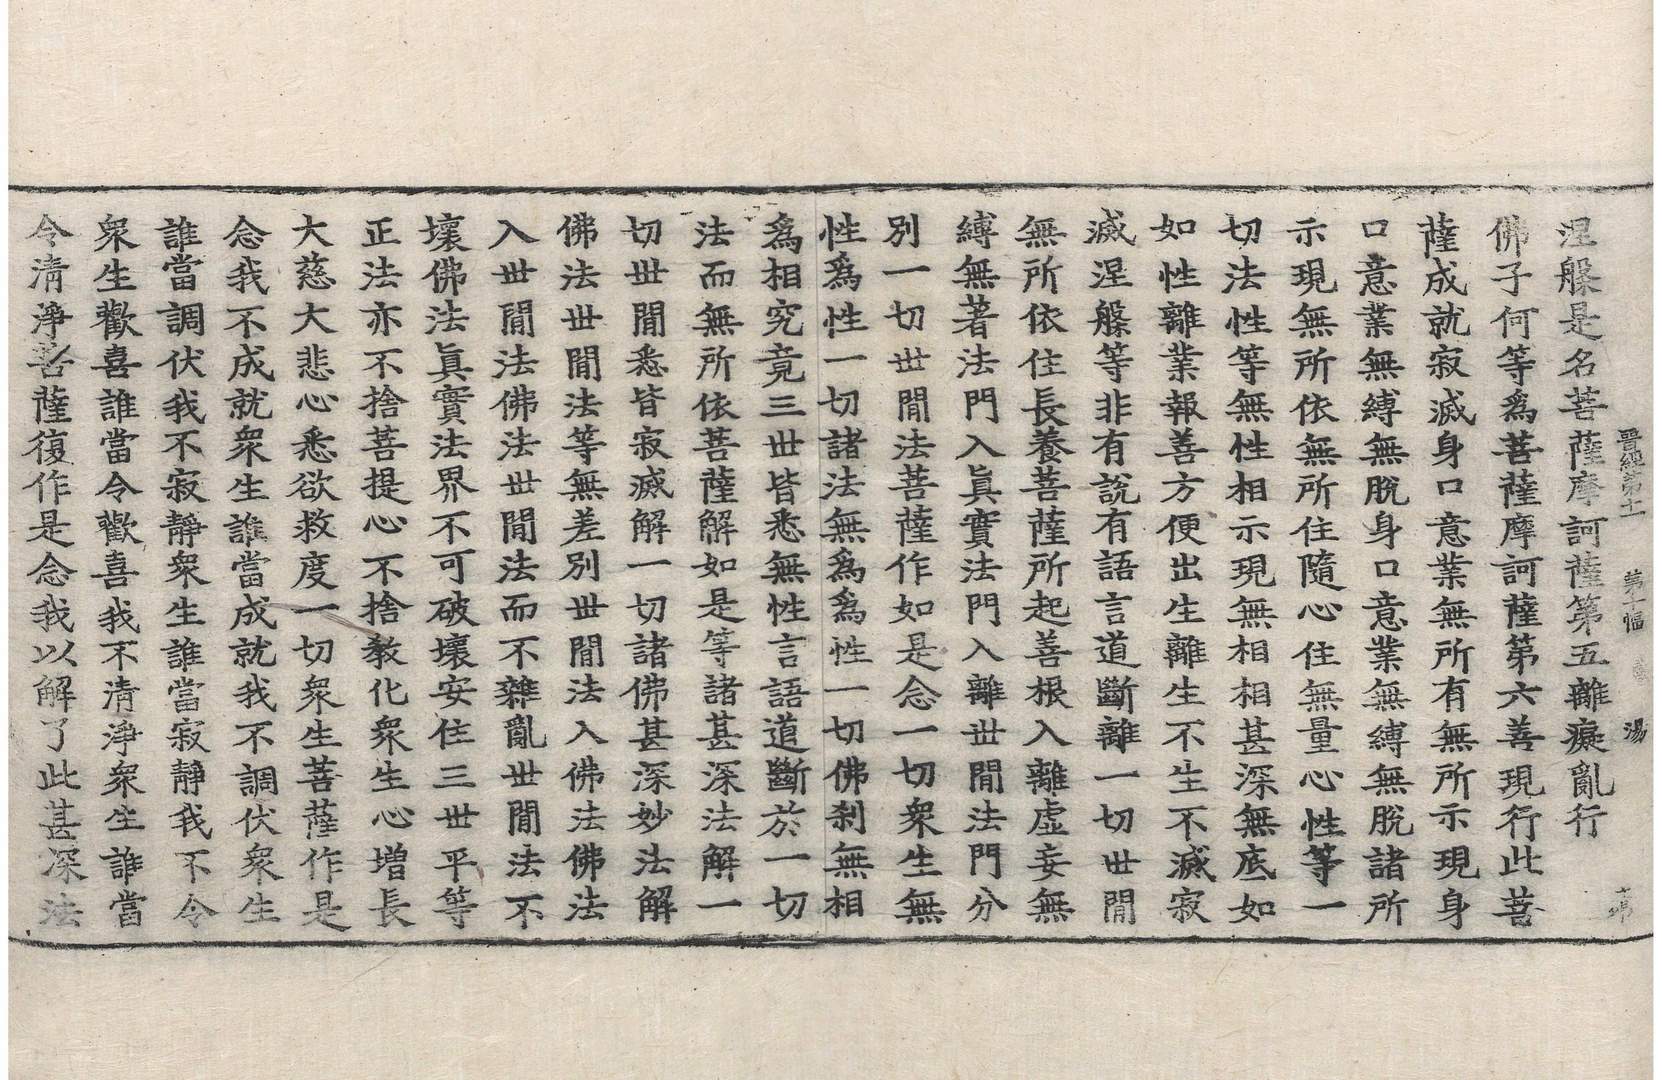 晋經第十一 第十幅 湯
涅槃是名菩薩摩訶薩第五離癡亂行
佛子何等爲菩薩摩訶薩第六善現行此菩
薩成就寂滅身口意業無所有無所示現身
口意業無縛無脫身口意業無縛無脫諸所
示現無所依無所住隨心住無量心性等一
切法性等無性相示現無相相甚深無底如
如性離業報善方便出生離生不生不滅寂
滅涅槃等非有說有語言道斷離一切世間
無所依住長養菩薩所起善根入離虛妄無
縛無著法門入眞實法門入離世間法門分
別一切世間法菩薩作如是念一切衆生無
性爲性一切諸法無爲爲性一切佛刹無相
爲相究竟三世皆悉無性言語道斷於一切
法而無所依菩薩解如是等諸甚深法解一
切世間悉皆寂滅解一切諸佛甚深妙法解
佛法世間法等無差別世間法入佛法佛法
入世間法佛法世間法而不雜亂世間法不
壞佛法眞實法界不可破壞安住三世平等
正法亦不捨菩提心不捨敎化衆生心增長
大慈大悲心悉欲救度一切衆生菩薩作是
念我不成就衆生誰當成就我不調伏衆生
誰當調伏我不寂靜衆生誰當寂靜我不令
衆生歡喜誰當令歡喜我不清淨衆生誰當
令清淨菩薩復作是念我以解了此甚深法